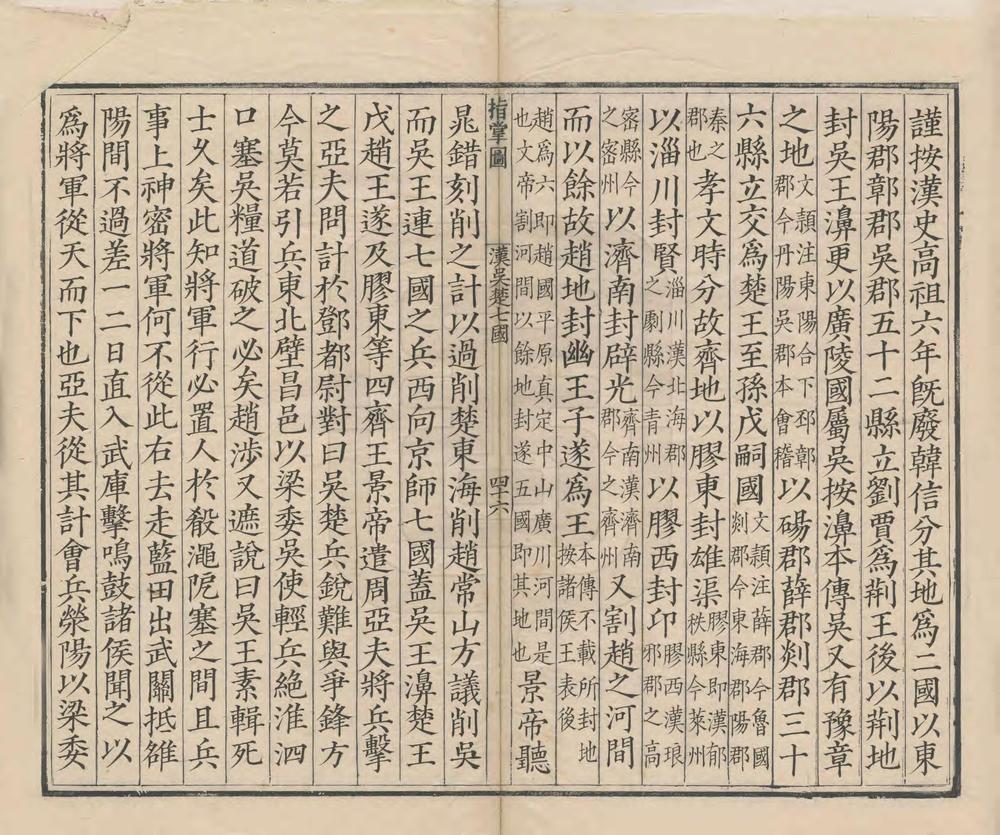 謹按漢史高祖六年既廢韓信分其地為二國以東
陽郡鄣郡吳郡五十二縣立劉賈為荆王後以荆地
封吳王濞更以廣陵國屬吳按濞本傳吳又有豫章
之地文頴注東陽合下邳鄣郡今丹陽吳郡本會稽以碭郡薛郡郯郡三十
六縣立交為楚王至孫戊嗣國文頴注薛郡今魯國郯郡今東海郡陽郡
秦之郡也孝文時分故齊地以膠東封雄渠膠東即漢郁秩縣今萊州
以淄川封賢淄川漢北海郡之劇縣今青州以膠西封卭膠西漢琅邪郡之高
密縣今之密州以濟南封辟光齊南漢濟南郡今之齊州又割趙之河間
而以餘故趙地封幽王子遂為王本傳不載所封地按諸侯王表後
趙為六即趙國平原真定中山廣川河間是也文帝割河間以餘地封遂五國即其地也景帝聽
指掌圖 漢吳楚七國 四十六
鼂錯刻削之計以過削楚東海削趙常山方議削吳
而吳王連七國之兵西向京師七國蓋吳王濞楚王
戊趙王遂及膠東等四齊王景帝遣周亞夫將兵擊
之亞夫問計於鄧都尉對曰吳楚兵銳難與爭鋒方
今莫若引兵東北壁昌邑以梁委吳使輕兵絶淮泗
口塞吳糧道破之必矣趙涉又遮說曰吳王素輯死
士夂矣此知將軍行必置人於殽澠阨塞之間且兵
事上神密將軍何不從此右去走藍田出武關抵雒
陽間不過差一二日直入武庫擊鳴鼓諸侯聞之以
為將軍從天而下也亞夫從其計會兵滎陽以梁委